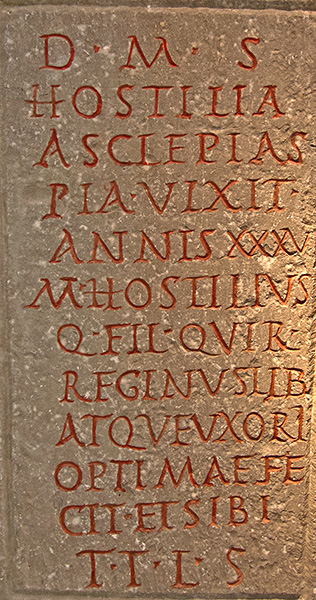 D · M · S
HOSTILIA
ASCLEPIAS
PIA · VIXIT ·
ANNIS XXXV
M · HOSTILIUS
Q · FIL · QVIR ·
REGINUS LIB
ATQVE VXORI
OPTIMAE FE
CIT · ET SIBI
T · T · L · S